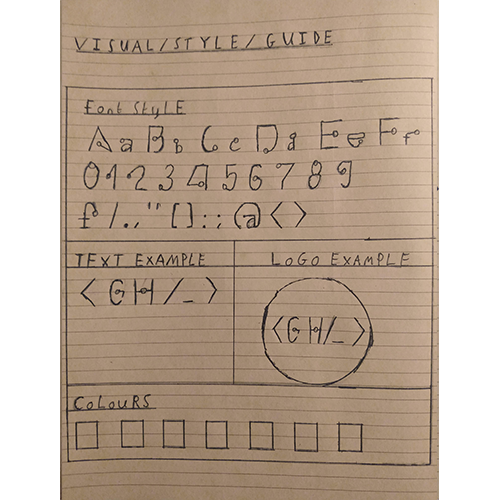 VISUAL/STYLE/GUIDE
Font StyLE
Aa Bb Cc Dd Ee Ff
0123456789
f/.,'"[]:;@<>
TEXT EXAMPLE
<GH/_>
LoGO EXAMPLE
<GH/_>
CoLouRS